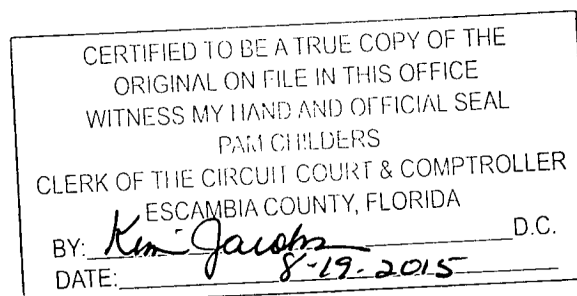 CERTIFIED TO BE A TRUE COPY OF THE
ORIGINAL ON FILE IN THIS OFFICE
WITNESS MY HAND AND OFFICIAL SEAL
PAM CHILDERS
CLERK OF THE CIRCUIT COURT & COMPTROLLER
ESCAMBIA COUNTY, FLORIDA
BY: Kim Jacobs D.C.
DATE: 8-19-2015